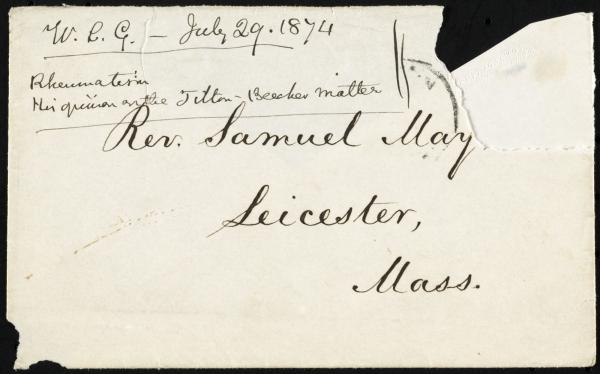 W. L. G. — July 29. 1874
Rheumatism
His opinion on the Tilton - Beecher matter
Rev. Samuel May
Leicester,
Mass.